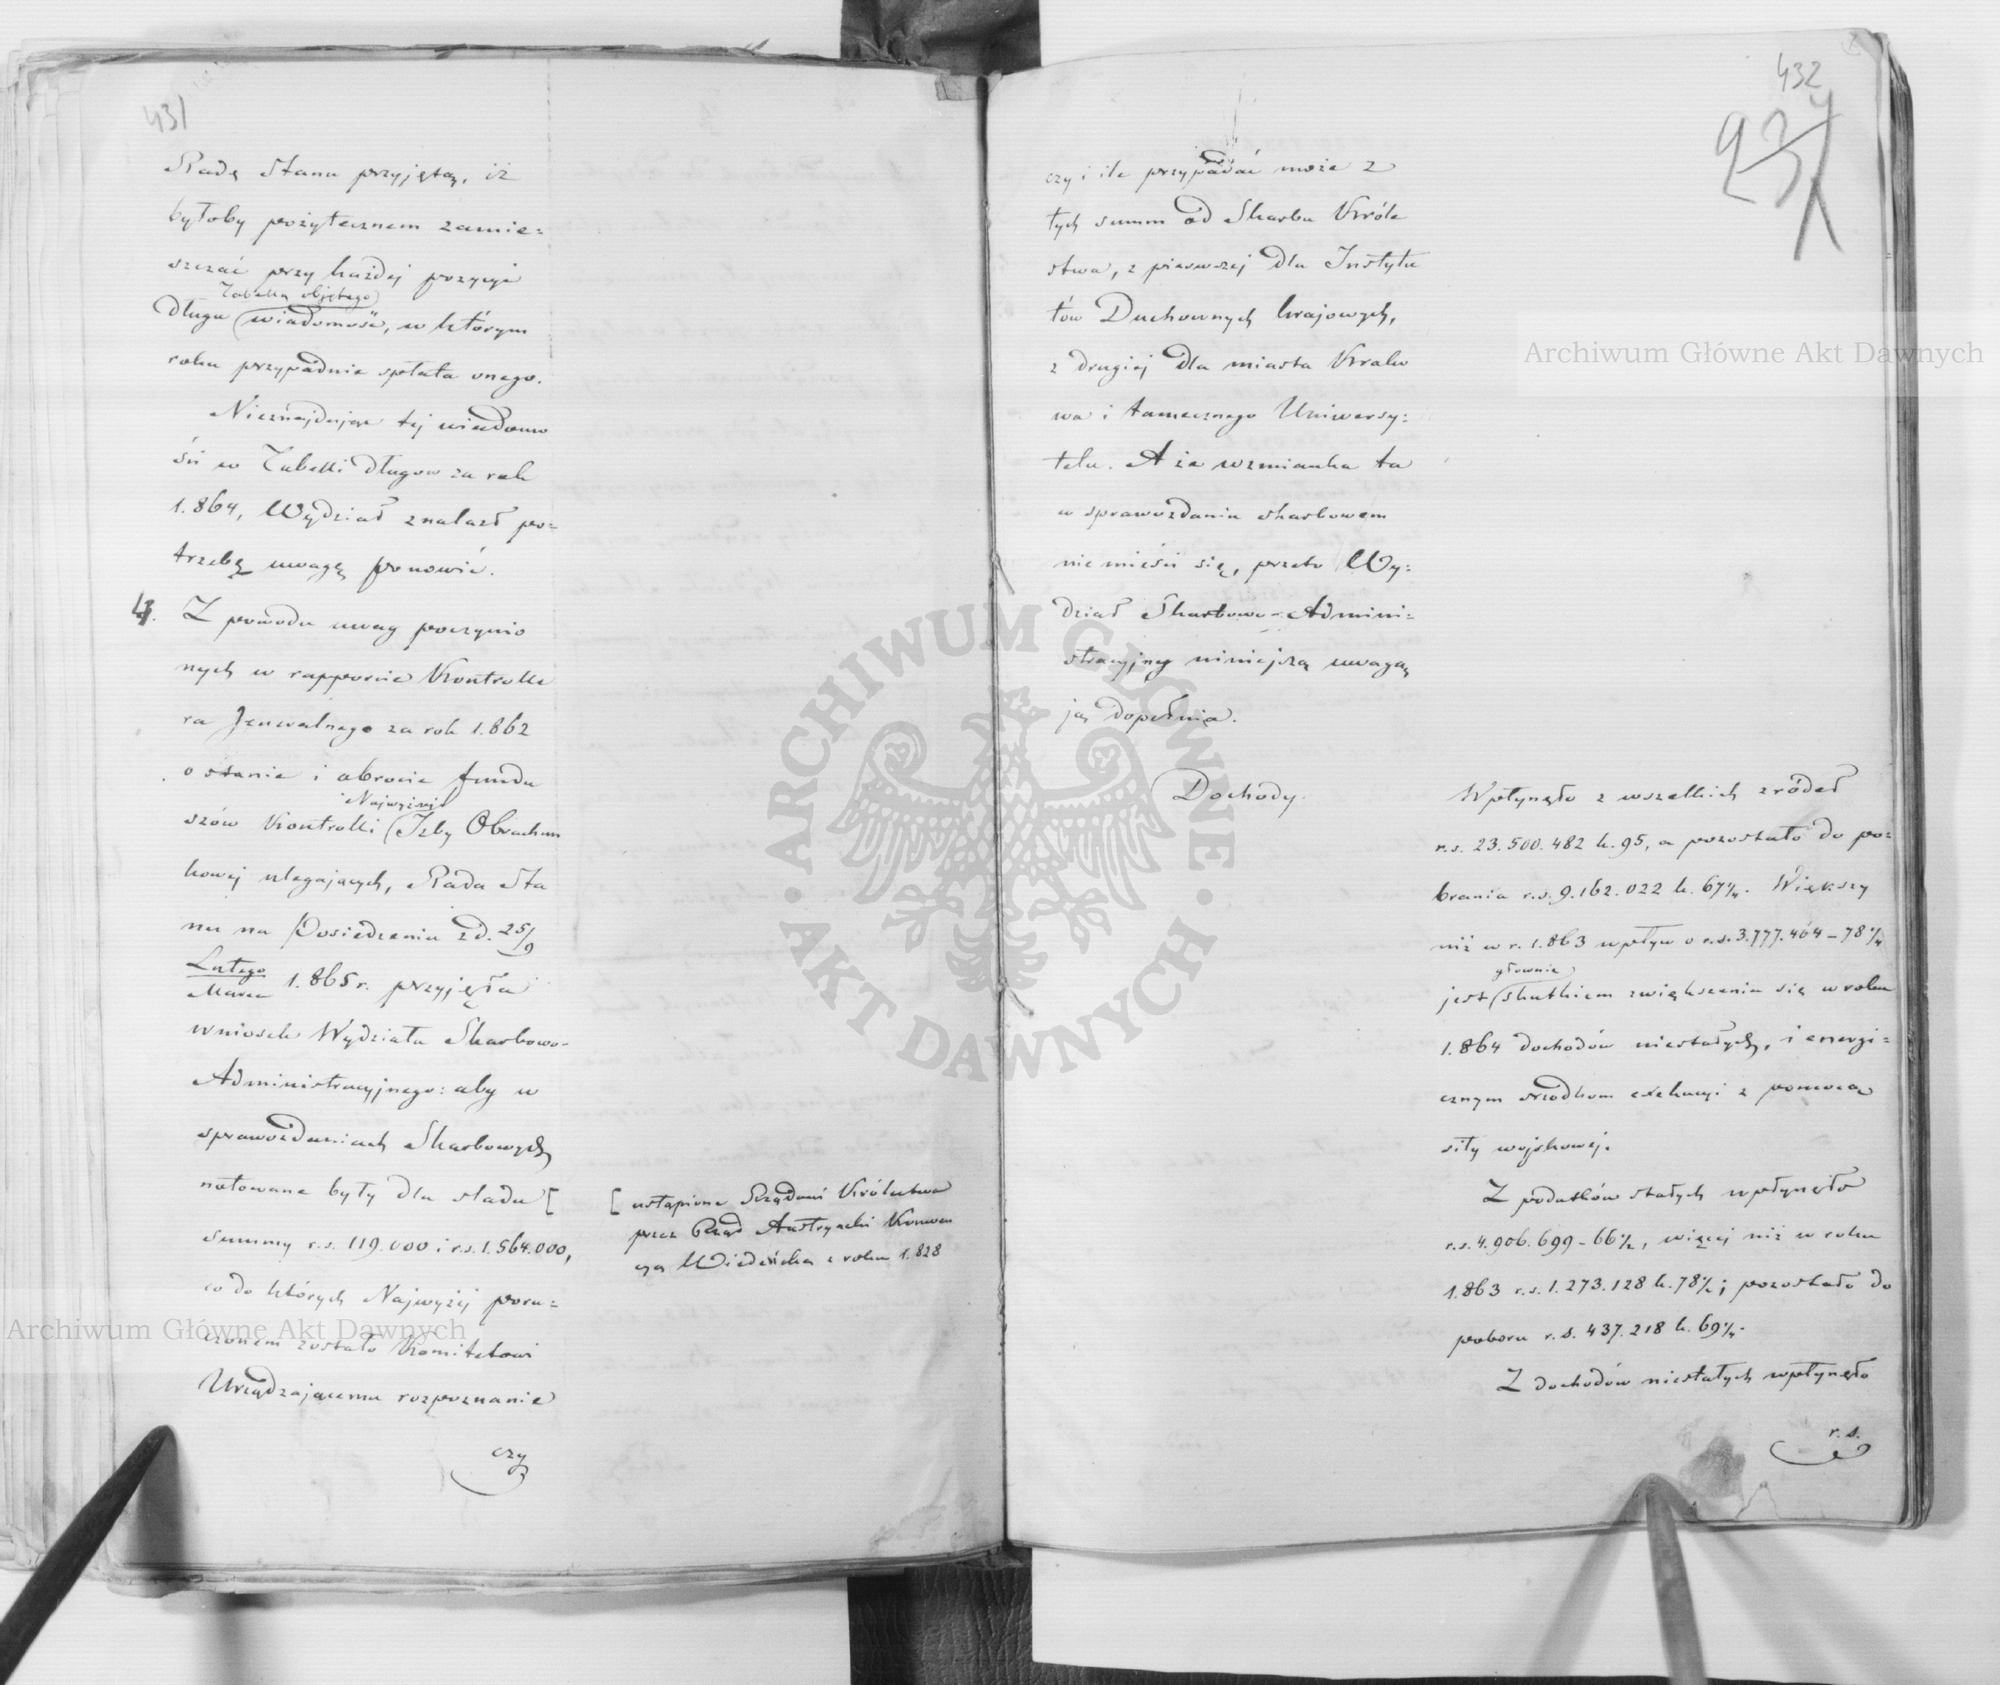 431
Radę Stanu przyjętą, iż
byłoby pożytecznem zamie=
szczać przy każdej pozycji
Tabellą objętego
długu wiadomość, w którym
roku przypadnie spłata onego.
Nieznajdując tej wiadomo
ści w Tabelli długow za rok
1.864, Wydział znalazł po=
trzebę uwagę ponowić.
4. Z powodu uwag poczynio
nych w rapporcie Kontrolle
ra Jeneralnego za rok 1.862
o stanie i obrocie fundu
Najwyższej
szów Kontrolli Izby Obrachun
kowej ulegających, Rada Sta
nu na Posiedzeniu z d. 25/9
Lutego
Marca 1.865 r. przyjęła
wniosek Wydziału Skarbowo-
Administracyjnego: aby w
sprawozdaniach Skarbowych
notowane były dla śladu [
summy r.s. 119.000 i r.s. 1.564.000,
co do których Najwyżej poru=
czonem zostało Komitetowi
Urządzającemu rozpoznanie
czy
[ ustąpione Rządowi Królestwa
przez Rząd Austryacki Konwen
cyą Wiedeńską z roku 1.828
432
czy i ile przypadać może z
tych summ od Skarbu Króle
stwa, z pierwszej dla Instytu
tów Duchownych krajowych,
z drugiej dla miasta Krako
wa i tamecznego Uniwersy=
tetu. A że wzmianka ta
w sprawozdaniu skarbowem
nie mieści się, przeto Wy=
dział Skarbowo-Admini=
stracyjny niniejszą uwagą
ją dopełnia.
Dochody.
Wpłynęło z wszelkich źródeł
r.s. 23.500.482 k. 95, a pozostało do po=
brania r.s. 9.162.022 k. 67¼. Większy
niż w r. 1.863 wpływ o r.s. 3.777.464 - 78¼
głównie
jest skutkiem zwiększenia się w roku
1.864 dochodów niestałych, i energi=
cznym środkom exekucyi z pomocą
siły wojskowej.
Z podatków stałych wpłynęło
r.s. 4.906.699 - 66½, więcej niż w roku
1.863 r.s. 1.273.128 k. 78½; pozostało do
poboru r.s. 437.218 k. 69¼.
Z dochodów niestałych wpłynęło
r.s.
Archiwum Główne Akt Dawnych
Archiwum Główne Akt Dawnych
ARCHIWUM GŁÓWNE AKT DAWNYCH